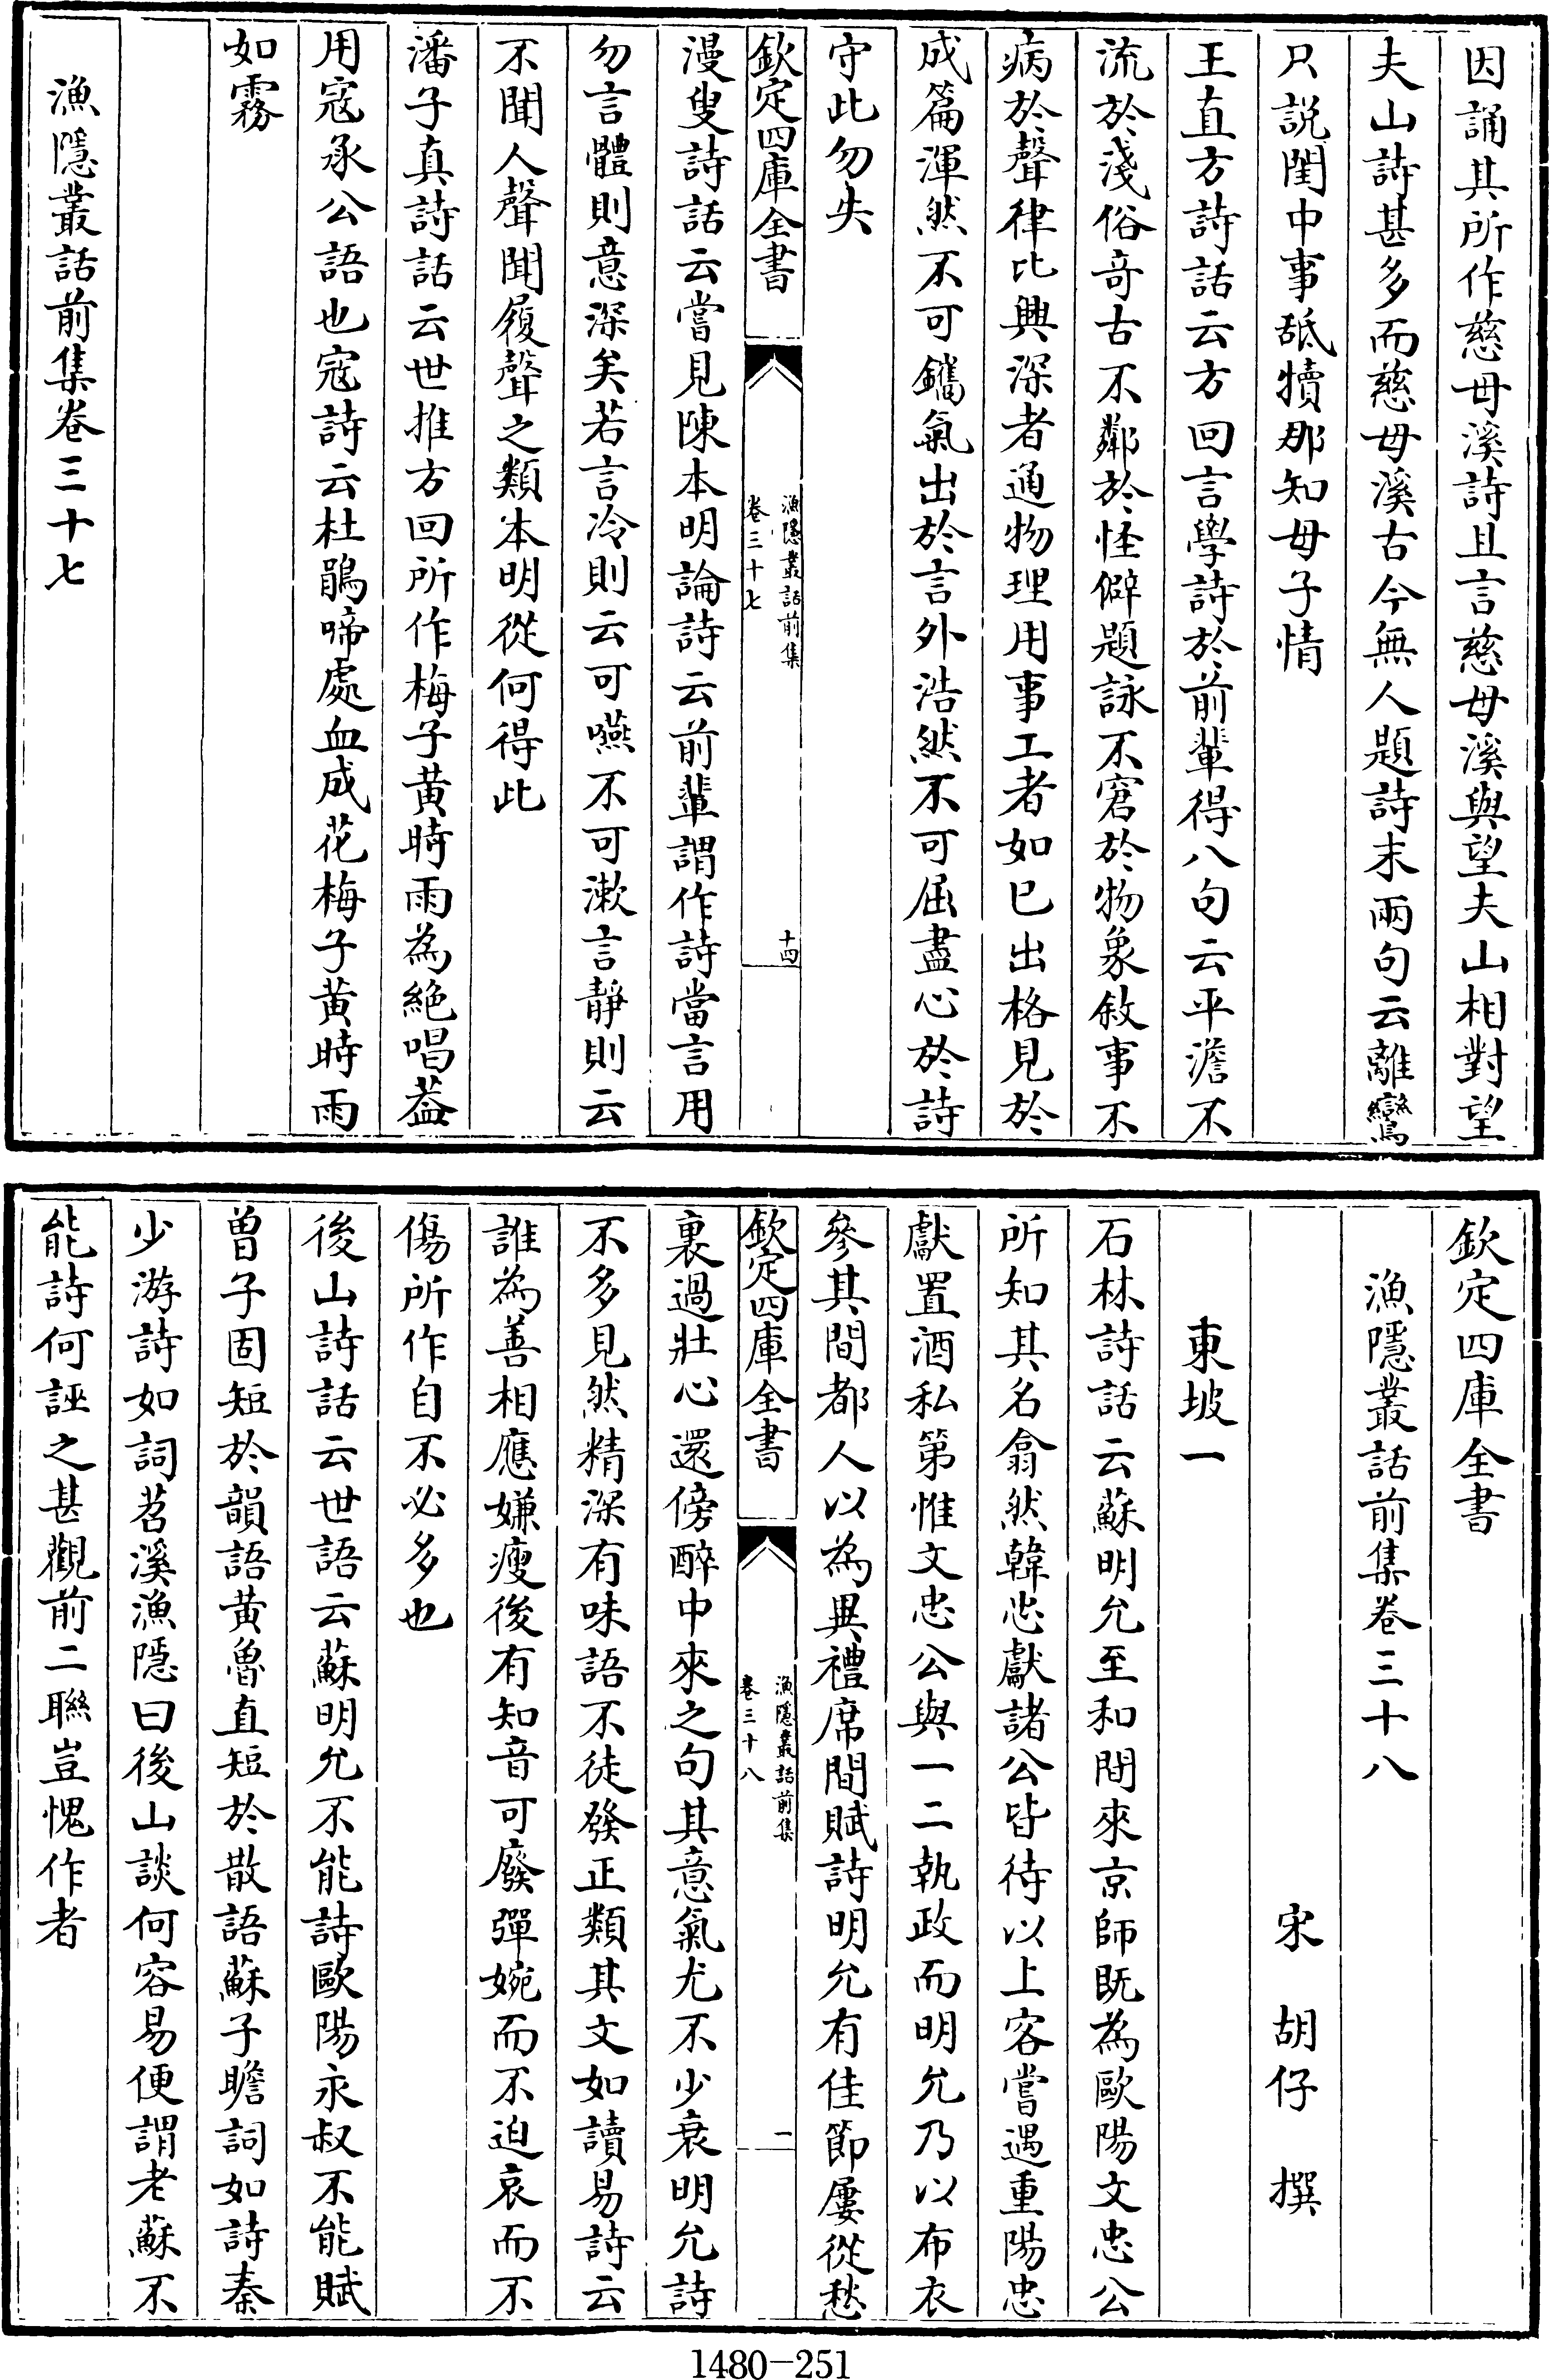 因誦其所作慈母溪詩且言慈母溪與望夫山相對望
夫山詩甚多而慈母溪古今無人題詩末兩句云離鸞
只說閨中事舐犢那知母子情
王直方詩話云方回言學詩於前輩得八句云平澹不
流於淺俗奇古不鄰於怪僻題詠不窘於物象敘事不
病於聲律比興深者通物理用事工者如已出格見於
成篇渾然不可鐫氣出於言外浩然不可屈盡心於詩
守此勿失
欽定四庫全書
漁隱叢話前集
卷三十七
十四
漫叟詩話云嘗見陳本明論詩云前輩謂作詩當言用
勿言體則意深矣若言冷則云可嚥不可漱言靜則云
不聞人聲聞履聲之類本明從何得此
潘子真詩話云世推方回所作梅子黃時雨為絕唱葢
用寇萊公語也寇詩云杜鵑啼處血成花梅子黃時雨
如霧
漁隱叢話前集卷三十七
欽定四庫全書
漁隱叢話前集卷三十八
宋 胡仔 撰
東坡一
石林詩話云蘇明允至和間來京師既為歐陽文忠公
所知其名翕然韓忠獻諸公皆待以上客嘗遇重陽忠
獻置酒私第惟文忠公與一二執政而明允乃以布衣
參其間都人以為異禮席間賦詩明允有佳節屢從愁
欽定四庫全書
漁隱叢話前集
卷三十八
一
裏過壯心還傍醉中來之句其意氣尤不少衰明允詩
不多見然精深有味語不徒發正類其文如讀易詩云
誰為善相應嫌瘦後有知音可廢彈婉而不迫哀而不
傷所作自不必多也
後山詩話云世語云蘇明允不能詩歐陽永叔不能賦
曾子固短於韻語黃魯直短於散語蘇子瞻詞如詩秦
少游詩如詞苕溪漁隱曰後山談何容易便謂老蘇不
能詩何誣之甚觀前二聯豈愧作者
1480-251